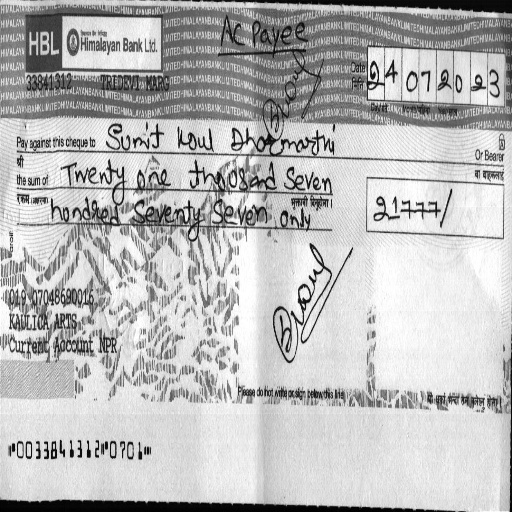 AC Payee
HBL Himalayan Bank Ltd.
33841312 TRIDEVI MARG
Date 24 07 20 23
मिति
Pay against this cheque to Sumit koul Dhormarthi
Or Bearer
श्री
वा वाहकलाई
the sum of Twenty one thousand Seven
hundred Seventy Seven only
21777/
019 07048690016
KAULICA ARTS
Current Account NPR
Please do not write or sign below this line
⑈0033841312⑈0701⑈